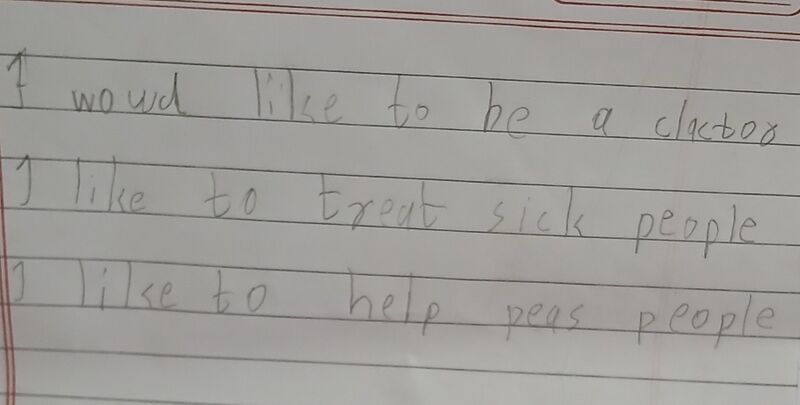 I woud like to be a doctor
I like to treat sick people
I like to help peas people